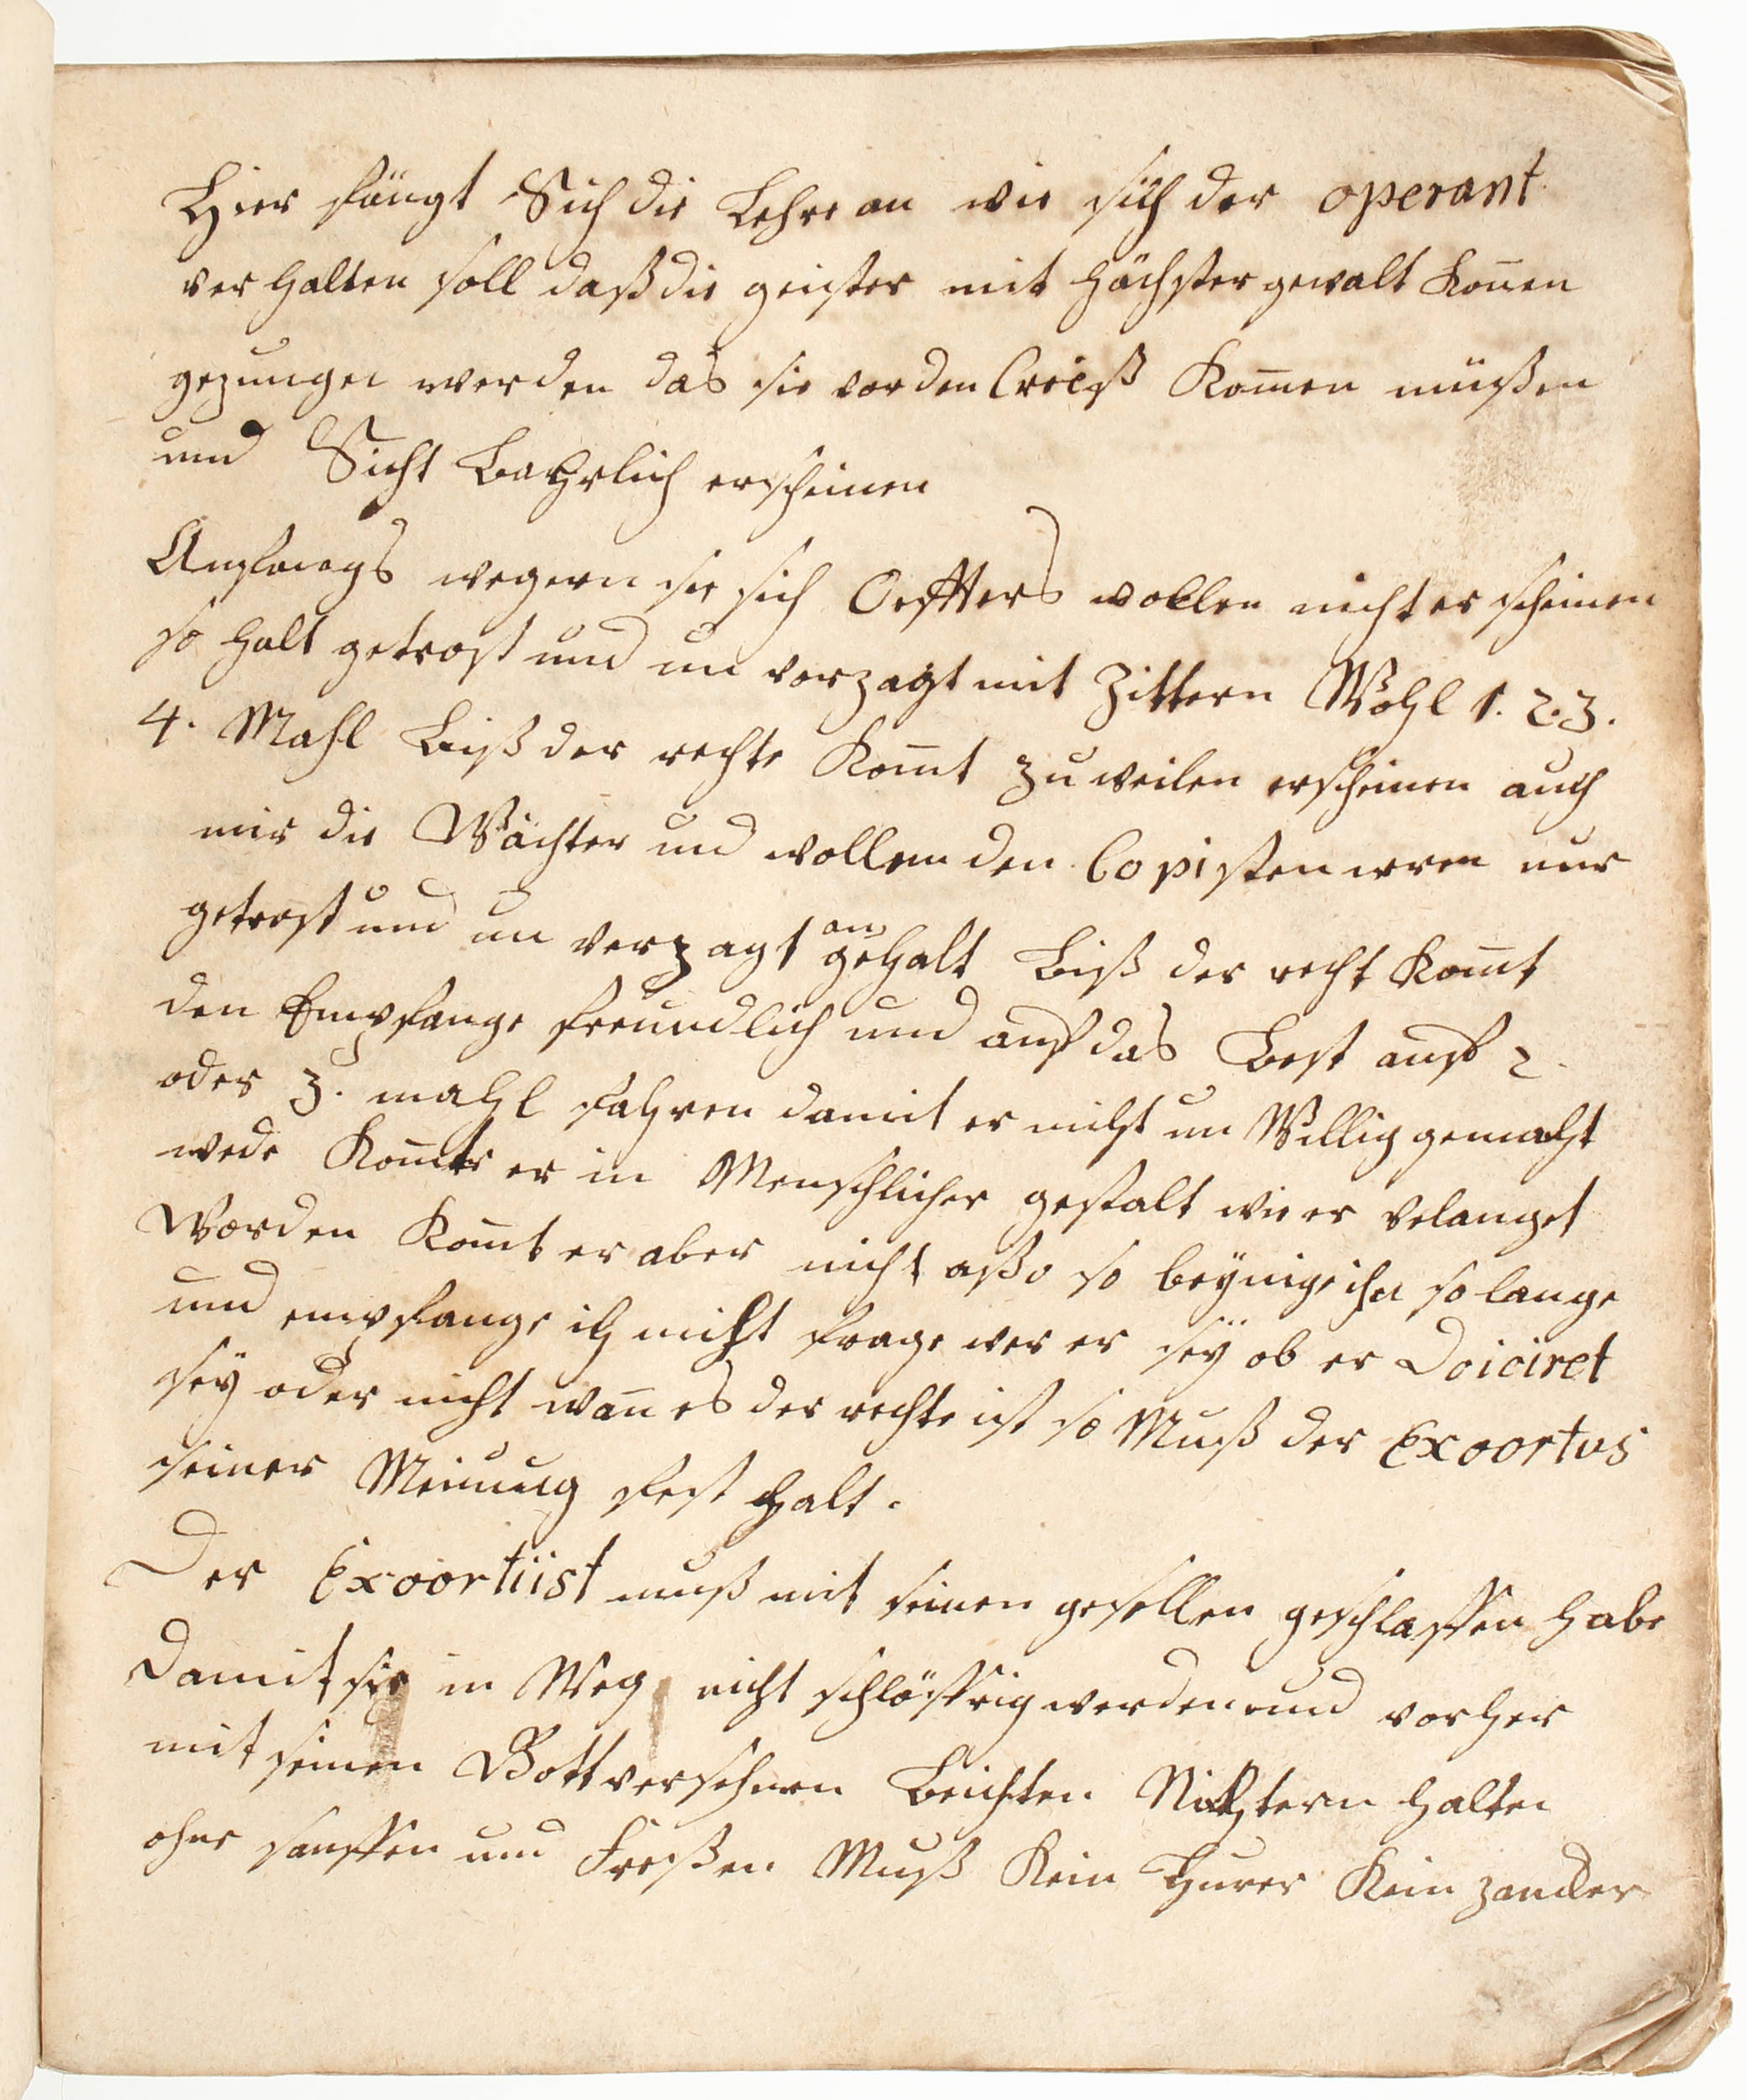 Hier fängt Sich die Lehre an wie sich der operant
ver halten soll daß die geister mit höchster gewalt Kon̄en
gezungen werden das sie vor den Creiß Kom̄en müßen
und Sicht Bahrlich erscheinen
Anfangs wegern sie sich Oeffters wollen nicht er scheinen
so halt getrost und un verzagt mit Zittern Wohl 1. 2. 3.
4. Mahl Biß der rechte Kom̄t zu weilen erscheinen auch
mir die Wächter und wollen den Copisten irren nur
getrost und un verzagt an gehalt Biß der recht Kom̄t
den Empfange freundlich und auf das Best auf 2.
oder 3. mahl fahren damit er nicht un Willig gemacht
wede Kom̄t er in Menschlicher gestalt wie er velanget
Worden Kom̄t er aber nicht aßo so beÿnige ihn so lange
und empfange ih nicht frage wer er seÿ ob er Doiciret
seÿ oder nicht wan̄ es der rechte ist so Muß der Exoortus
seiner Meinung fest halt.
Der Exoortiist muß mit seinen gesellen geschlaffen habe
Damit sie in Weg nicht schläffrig werden und vorher
mit seinen Gott versehnen Beichten Nichtern halten
ohne sauffen und Freßen Muß Kein Hurer Kein zancker